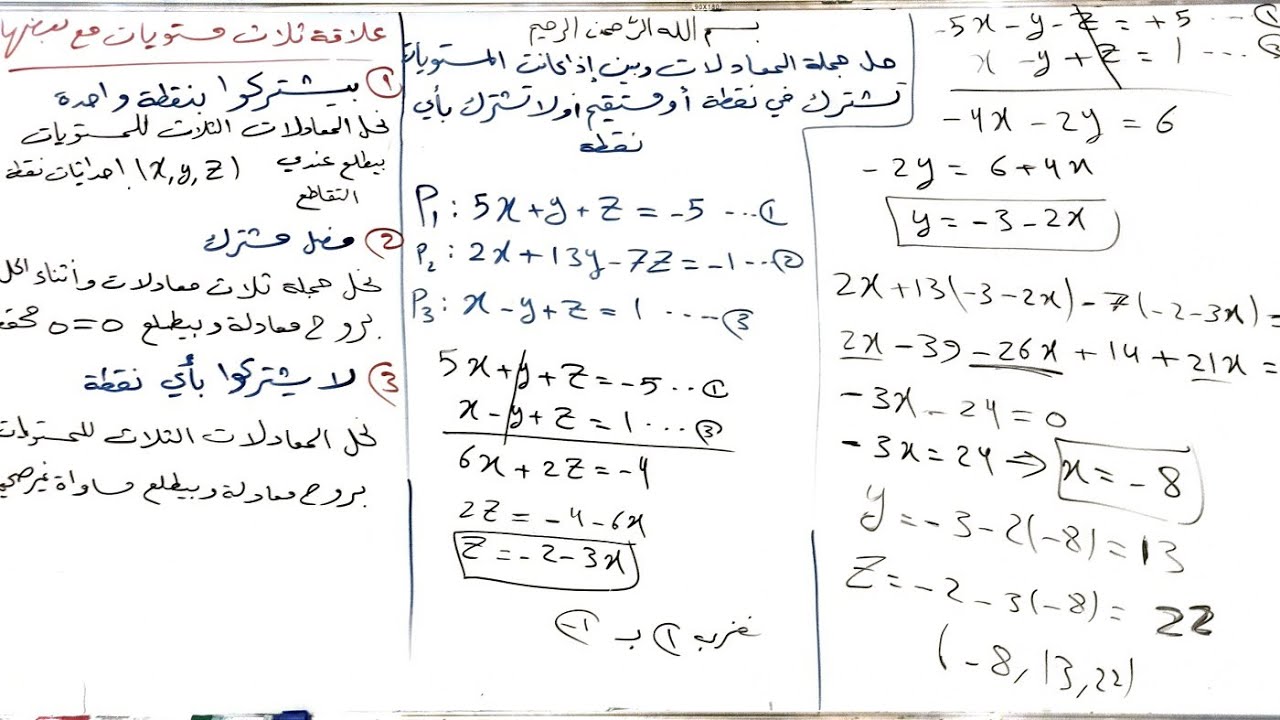 علاقة ثلاث مستويات مع بعضها
① بيشتركوا بنقطة واحدة
نحل المعادلات الثلاث للمستويات
بيطلع عندي (x,y,z) احداثيات نقطة
التقاطع
② فصل مشترك
نحل جملة ثلاث معادلات وأثناء الحل
بروح معادلة وبيطلع 0=0 محققة
③ لا يشتركوا بأي نقطة
نحل المعادلات الثلاث للمستويات
بروح معادلة وبيطلع مساواة غير صحي
بسم الله الرحمن الرحيم
حل جملة المعادلات وبين إذا كانت المستويات
تشترك في نقطة أو مستقيم أو لا تشترك بأي
نقطة
P₁: 5x+y+z = -5 ---①
P₂: 2x+13y-7z = -1 ---②
P₃: x-y+z = 1 ----③
5x+y+z = -5 ---①
x-y+z = 1 ----③
6x+2z = -4
2z = -4-6x
z = -2-3x
نضرب ① ب -1
-5x-y-z = +5 ---①
x-y+z = 1 ----③
-4x-2y = 6
-2y = 6+4x
y = -3-2x
2x+13(-3-2x)-7(-2-3x) =
2x-39-26x+14+21x =
-3x-24 = 0
-3x = 24 ⇒ x = -8
y = -3-2(-8) = 13
z = -2-3(-8) = 22
(-8,13,22)